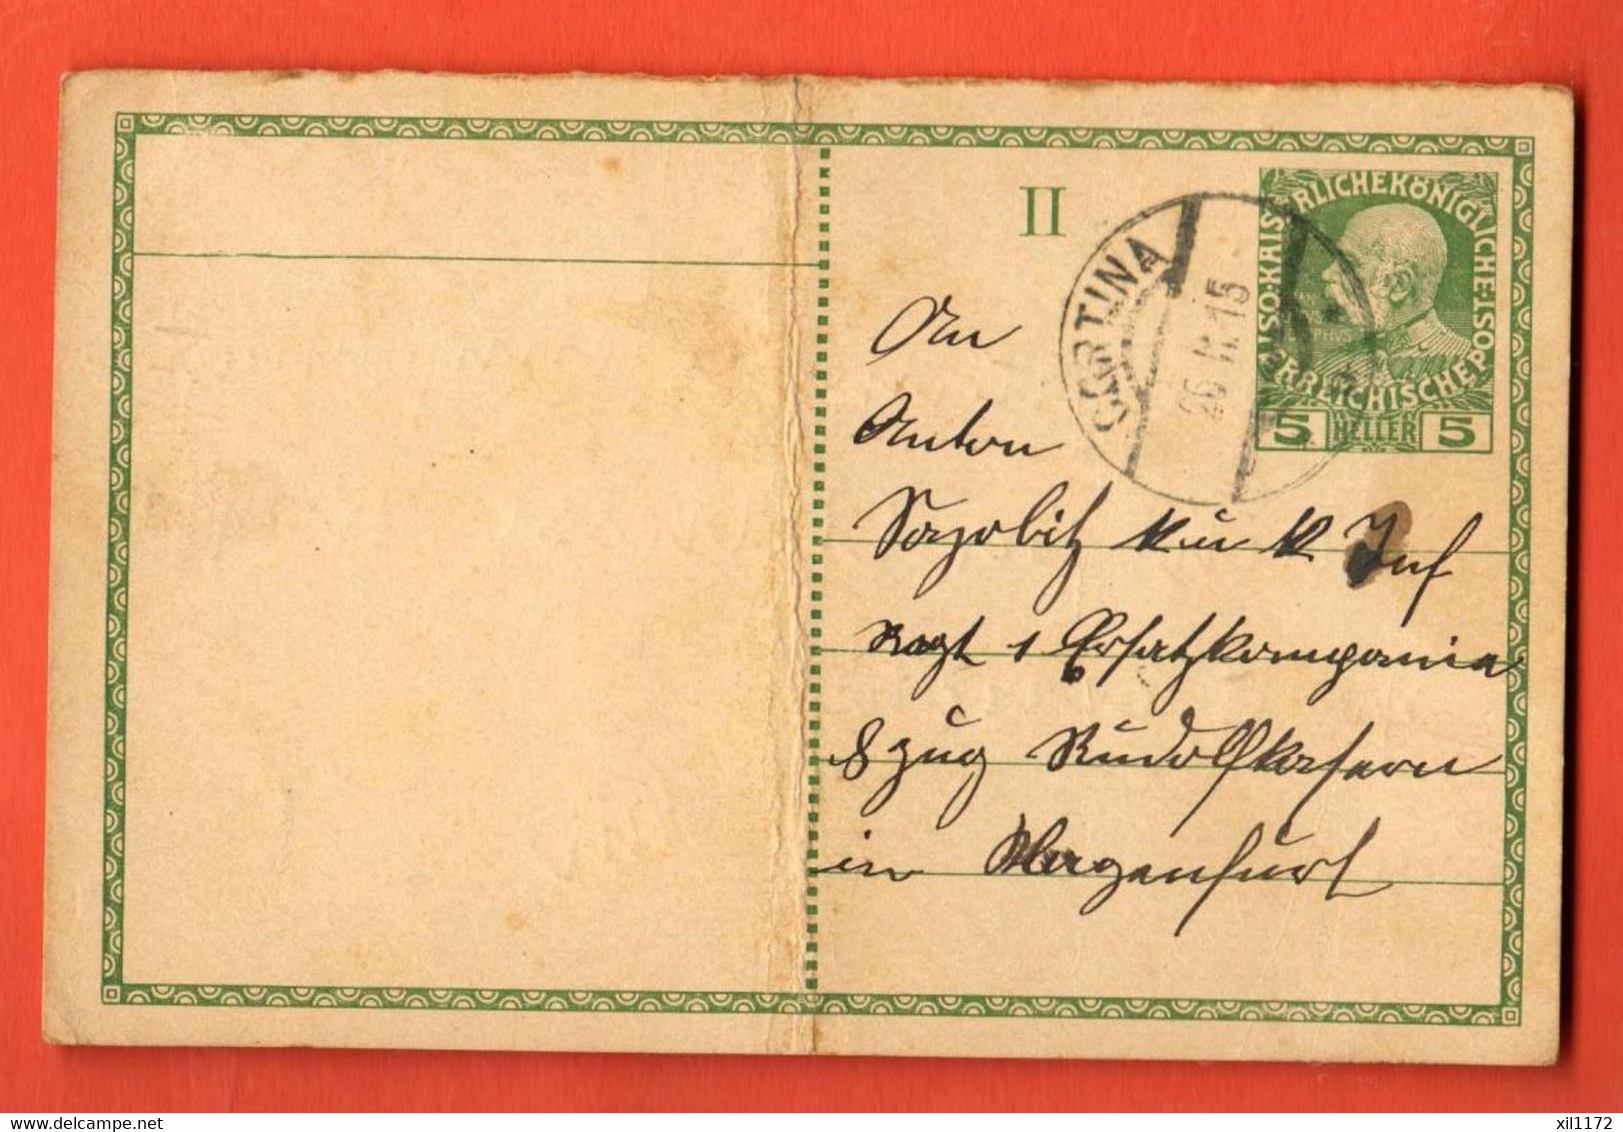 II
KAISERLICHEKÖNIGLICHE
ÖSTERREICHISCHE POST
5 HELLER 5
CORTINA
26 II 15
An
Anton
k u k Inf
Regt 1 Ersatzkompanie
8 Zug Rudolfkasern
in Klagenfurt
delcampe.net
xil1172